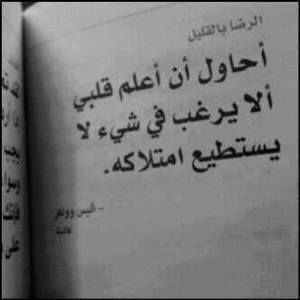 الرضا بالقليل
أحاول أن أعلم قلبي
ألا يرغب في شيء لا
يستطيع امتلاكه.
- أليس ووكر